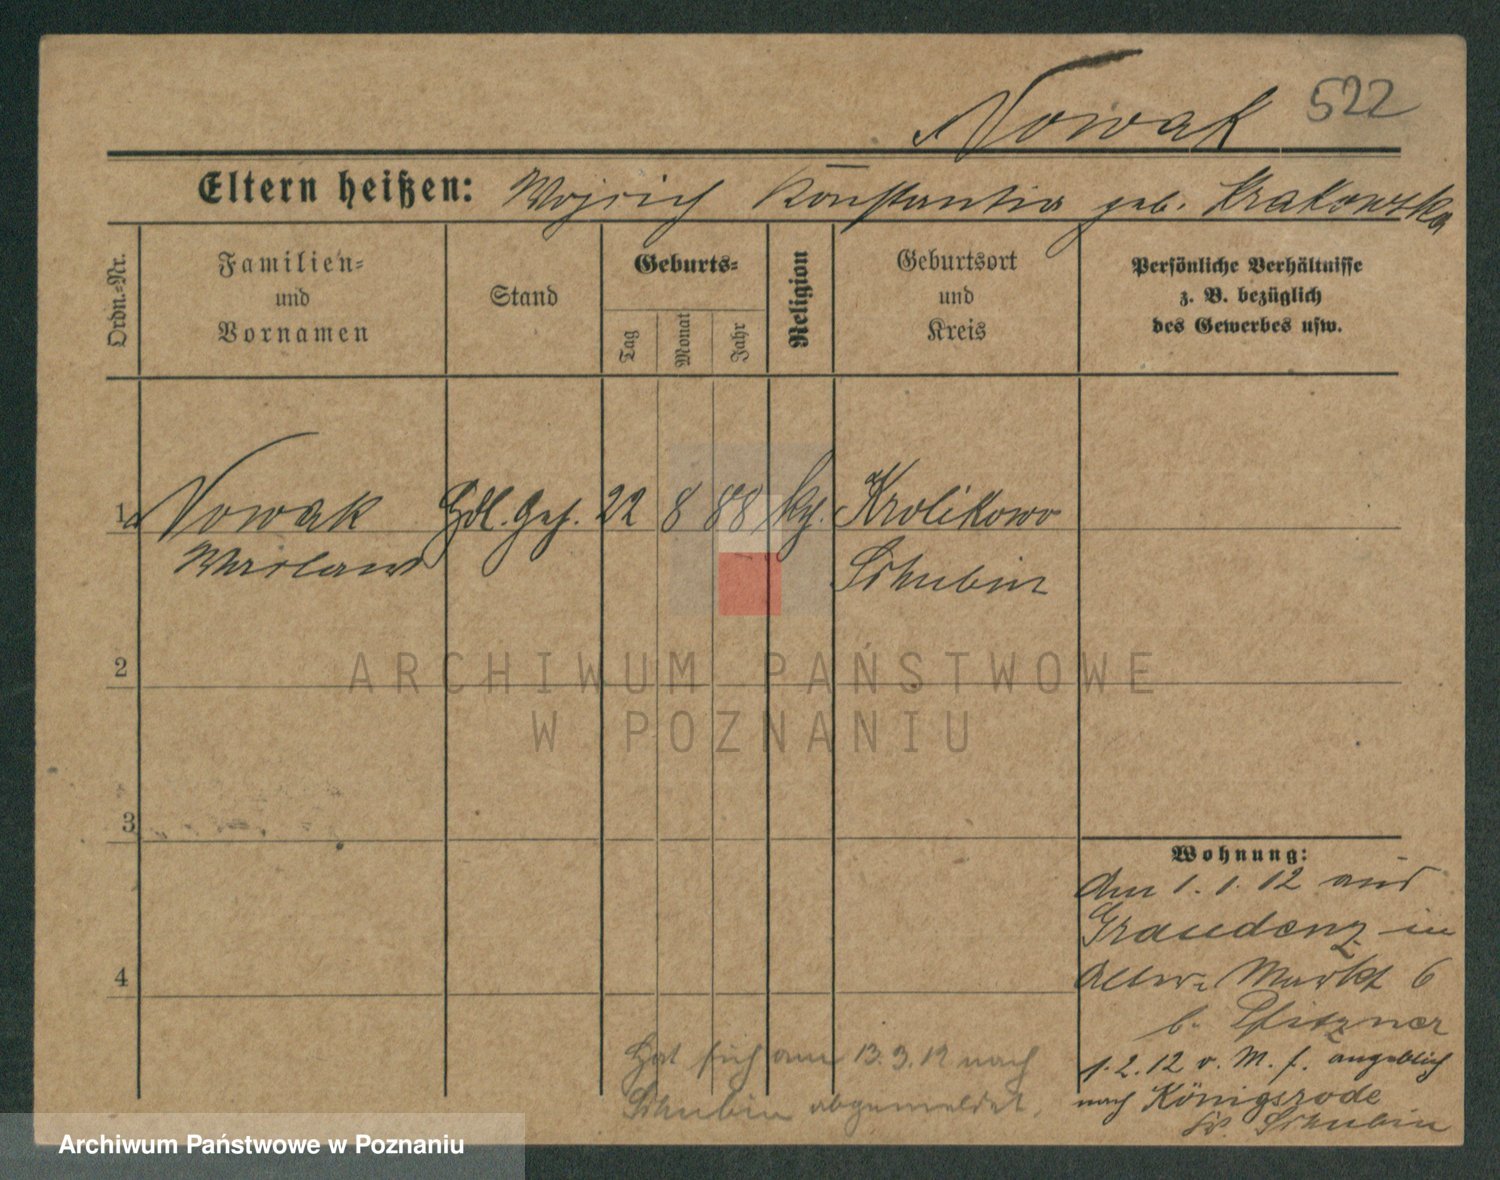 Nowak 522
Eltern heißen: Konstantia geb. Krakowska
Ordn.-Nr.
Familien-
und
Vornamen
Stand
Geburts-
Tag
Monat
Jahr
Religion
Geburtsort
und
Kreis
Persönliche Verhältnisse
z. B. bezüglich
des Gewerbes usw.
1 Nowak Hdl. Geh. 22 8 88 Krolikowo
Schubin
2
ARCHIWUM PAŃSTWOWE
W POZNANIU
3
4
Wohnung:
Am 1. 1. 12 aus
Graudenz in
Alter Markt 6
b. Pfitzner
1. 2. 12 v. M. f. angeblich
nach Königsrode
Kr. Schubin
Hat sich am 13.3.12 nach
Schubin abgemeldet.
Archiwum Państwowe w Poznaniu